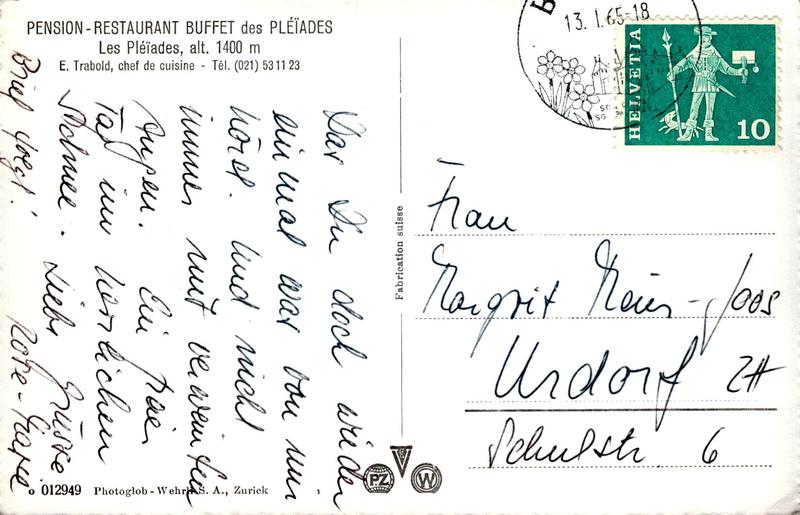 PENSION-RESTAURANT BUFFET des PLÉÏADES
Les Pléïades, alt. 1400 m
E. Trabold, chef de cuisine - Tél. (021) 53 11 23
Du doch wieder
einmal was von mir
hörst. Und nicht
immer mit verweinten
Augen. Ein freier
Tag im herrlichen
Schnee. Liebe Grüsse
Rose-Marie
Brief folgt!
o 012949 Photoglob-Wehrli S. A., Zurick
Fabrication suisse
PZ
W
13. I. 65-18
HELVETIA
10
Frau
Margrit Meier-Joos
Urdorf ZH
Schulstr. 6